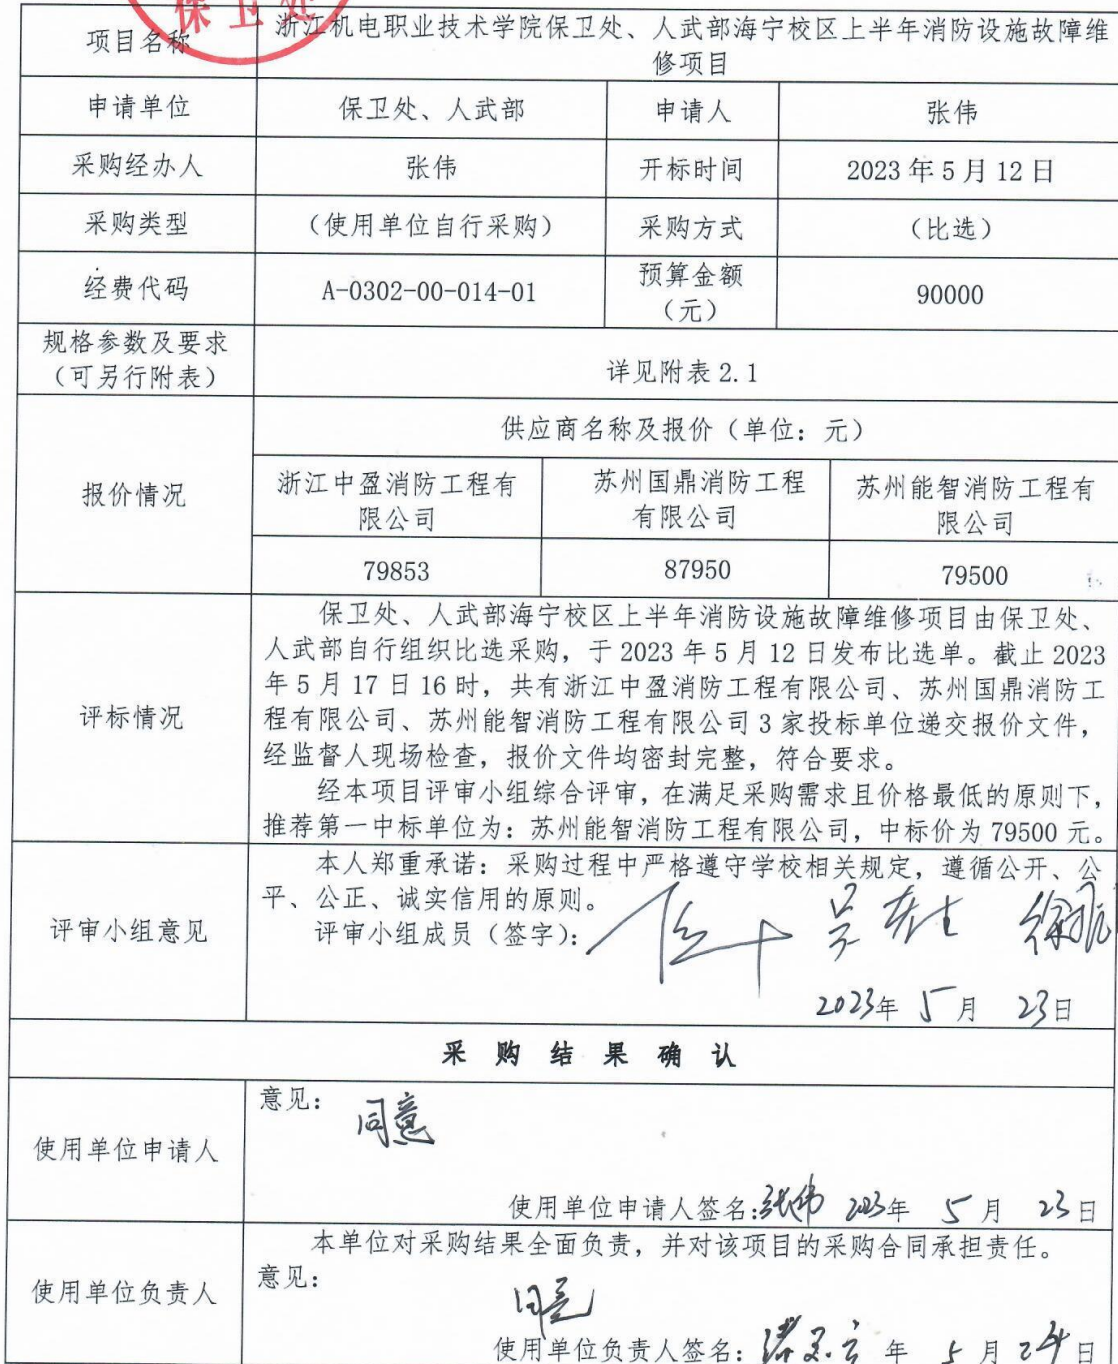 保卫处
项目名称 浙江机电职业技术学院保卫处、人武部海宁校区上半年消防设施故障维
修项目
申请单位 保卫处、人武部 申请人 张伟
采购经办人 张伟 开标时间 2023年5月12日
采购类型 (使用单位自行采购) 采购方式 (比选)
经费代码 A-0302-00-014-01 预算金额
(元) 90000
规格参数及要求
(可另行附表) 详见附表2.1
报价情况
供应商名称及报价(单位:元)
浙江中盈消防工程有
限公司
苏州国鼎消防工程
有限公司
苏州能智消防工程有
限公司
79853 87950 79500
评标情况
保卫处、人武部海宁校区上半年消防设施故障维修项目由保卫处、
人武部自行组织比选采购,于2023年5月12日发布比选单。截止2023
年5月17日16时,共有浙江中盈消防工程有限公司、苏州国鼎消防工
程有限公司、苏州能智消防工程有限公司3家投标单位递交报价文件,
经监督人现场检查,报价文件均密封完整,符合要求。
经本项目评审小组综合评审,在满足采购需求且价格最低的原则下,
推荐第一中标单位为:苏州能智消防工程有限公司,中标价为79500元。
评审小组意见
本人郑重承诺:采购过程中严格遵守学校相关规定,遵循公开、公
平、公正、诚实信用的原则。
评审小组成员(签字):
2023年 5月 23日
采购结果确认
使用单位申请人
意见: 同意
使用单位申请人签名:张伟 2023年 5月 23日
使用单位负责人
本单位对采购结果全面负责,并对该项目的采购合同承担责任。
意见: 同意
使用单位负责人签名: 年 5月24日